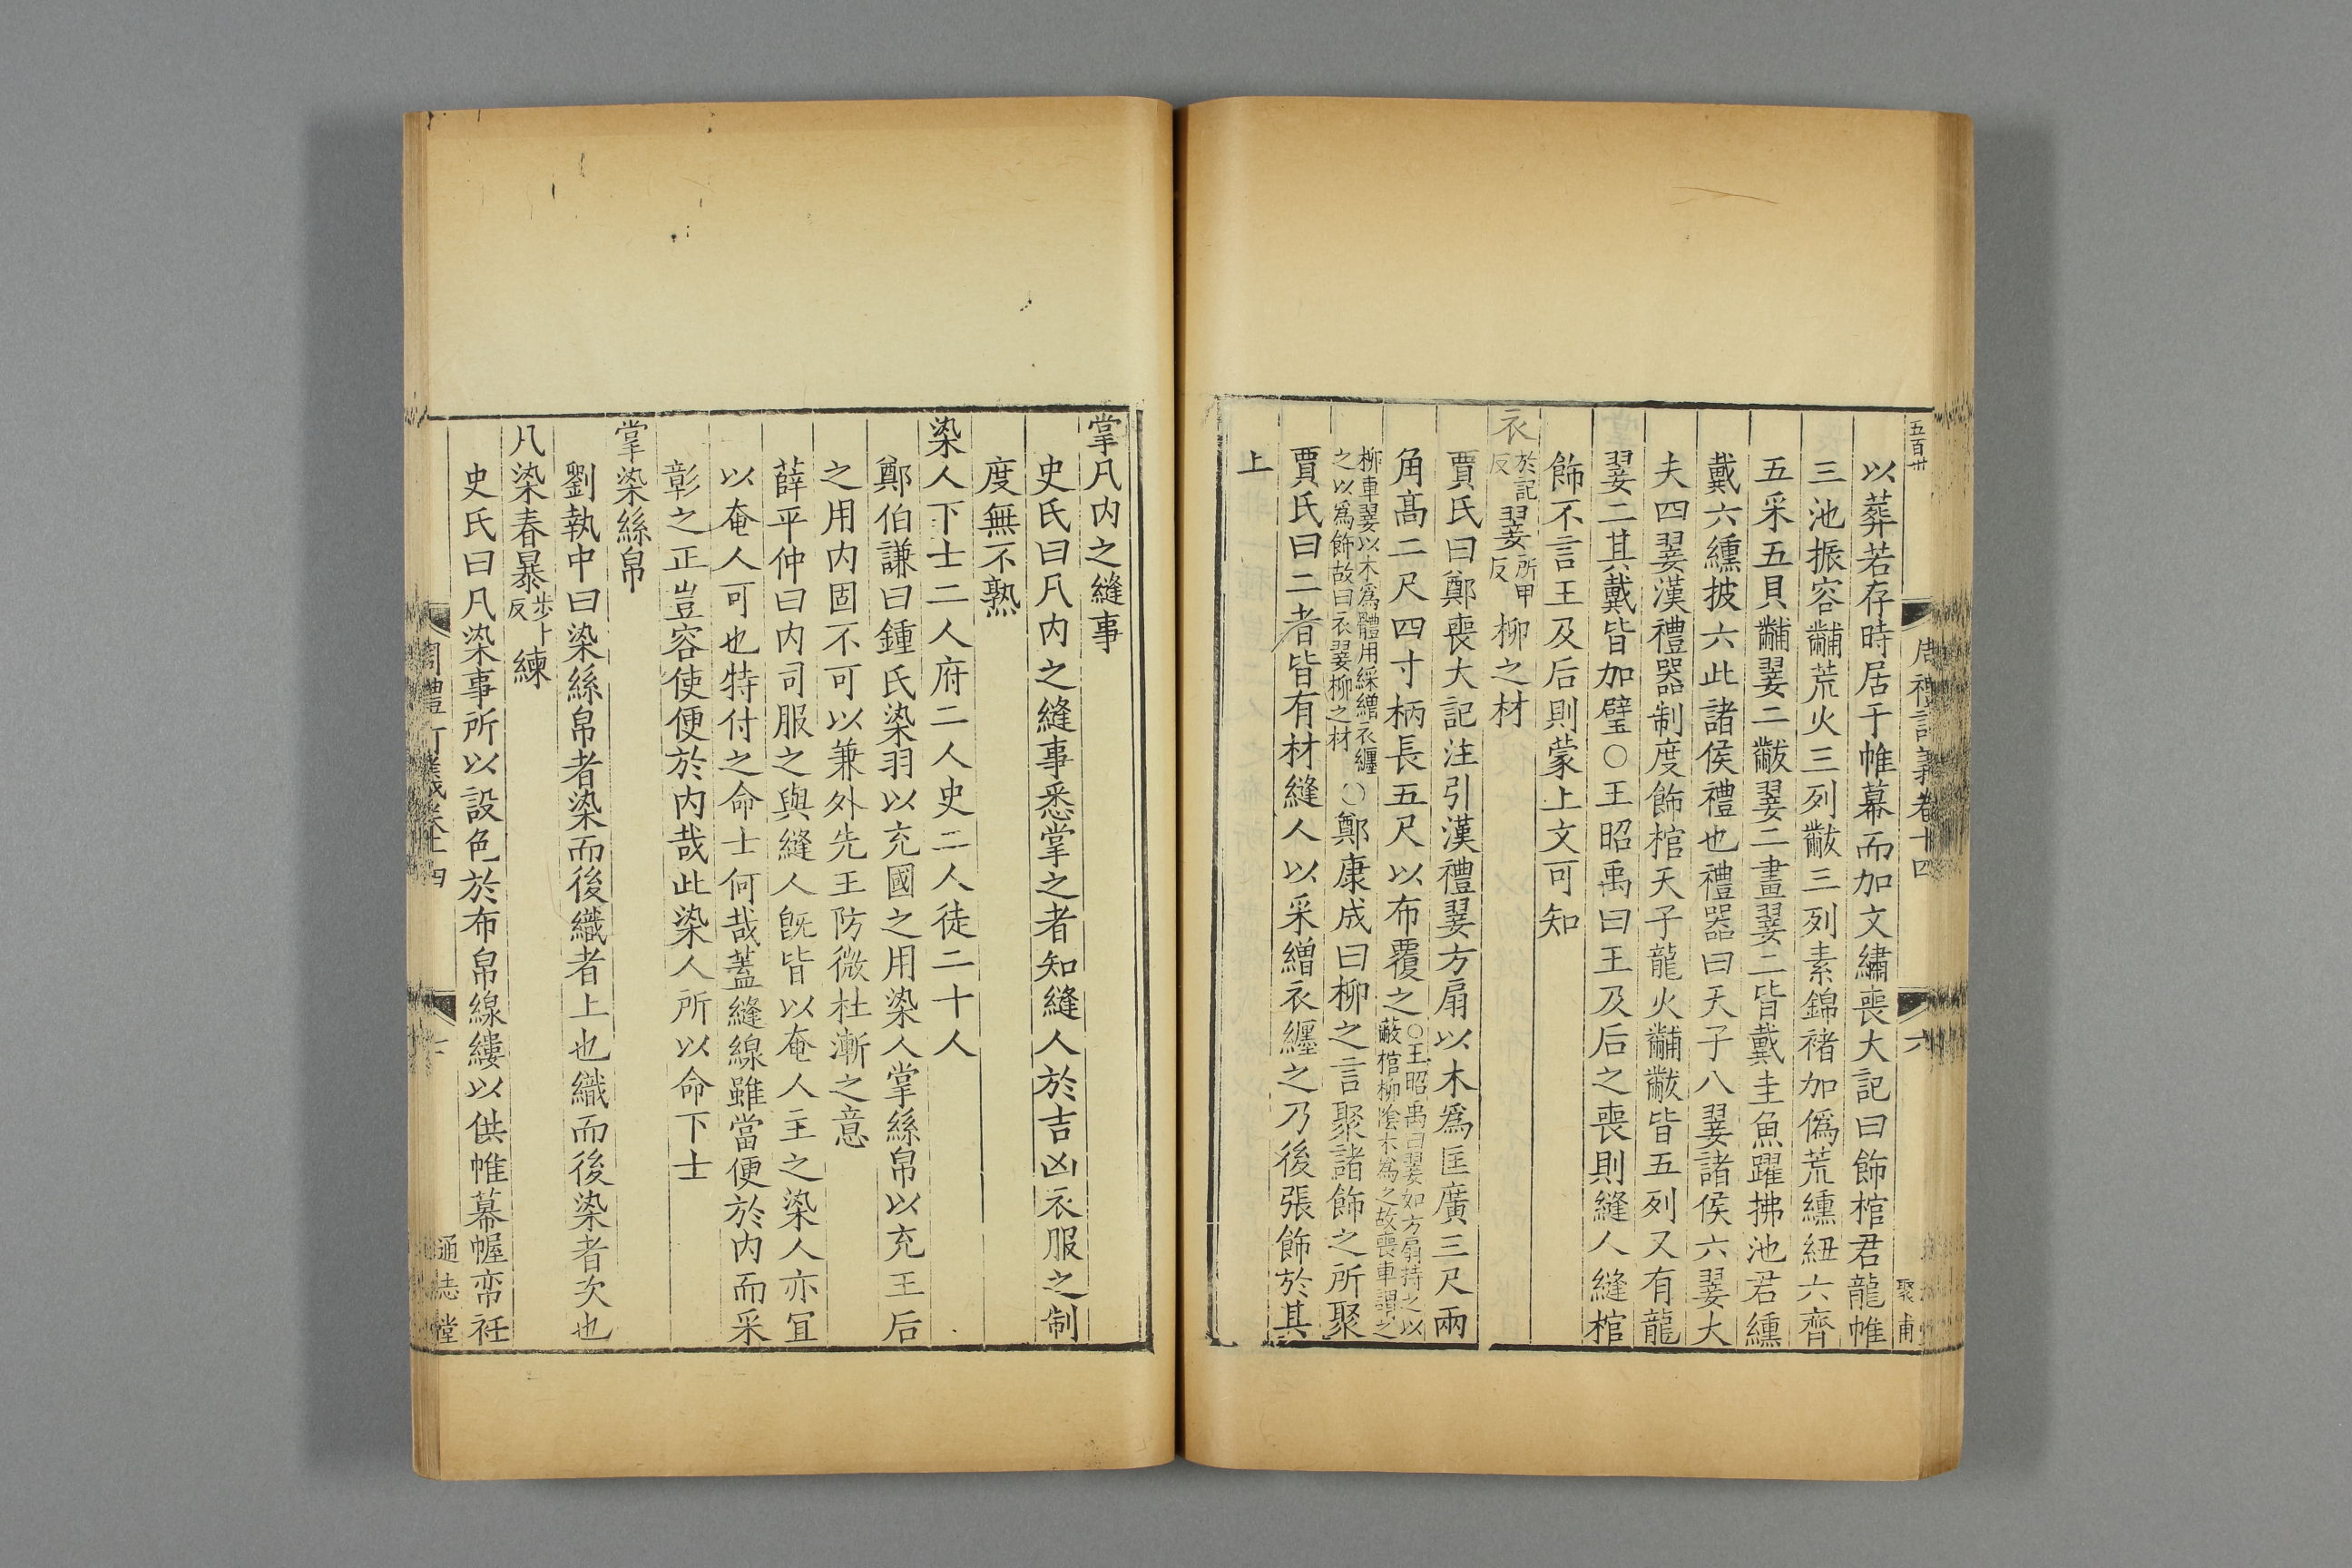 五百卅
周禮訂義卷十四
六
聚甫
以葬若存時居于帷幕而加文繡喪大記曰飾棺君龍帷
三池振容黼荒火三列黻三列素錦褚加僞荒纁紐六齊
五采五貝黼翣二黻翣二畫翣二皆戴圭魚躍拂池君纁
戴六纁披六此諸侯禮也禮器曰天子八翣諸侯六翣大
夫四翣漢禮器制度飾棺天子龍火黼黻皆五列又有龍
翣二其戴皆加璧○王昭禹曰王及后之喪則縫人縫棺
飾不言王及后則蒙上文可知
衣於記反翣所甲反柳之材
賈氏曰鄭喪大記注引漢禮翣方扇以木爲匡廣三尺兩
角高二尺四寸柄長五尺以布覆之○王昭禹曰翣如方扇持之以蔽棺柳陰木爲之故喪車謂之
柳車翣以木爲體用綵繒衣纏之以爲飾故曰衣翣柳之材○鄭康成曰柳之言聚諸飾之所聚
賈氏曰二者皆有材縫人以采繒衣纏之乃後張飾於其
上
掌凡内之縫事
史氏曰凡内之縫事悉掌之者知縫人於吉凶衣服之制
度無不熟
染人下士二人府二人史二人徒二十人
鄭伯謙曰鍾氏染羽以充國之用染人掌絲帛以充王后
之用内固不可以兼外先王防微杜漸之意
薛平仲曰内司服之與縫人旣皆以奄人主之染人亦宜
以奄人可也特付之命士何哉蓋縫線雖當便於内而采
彰之正豈容使便於内哉此染人所以命下士
掌染絲帛
劉執中曰染絲帛者染而後織者上也織而後染者次也
凡染春暴步卜反練
史氏曰凡染事所以設色於布帛線縷以供帷幕幄帟衽
周禮訂義卷十四
通志堂